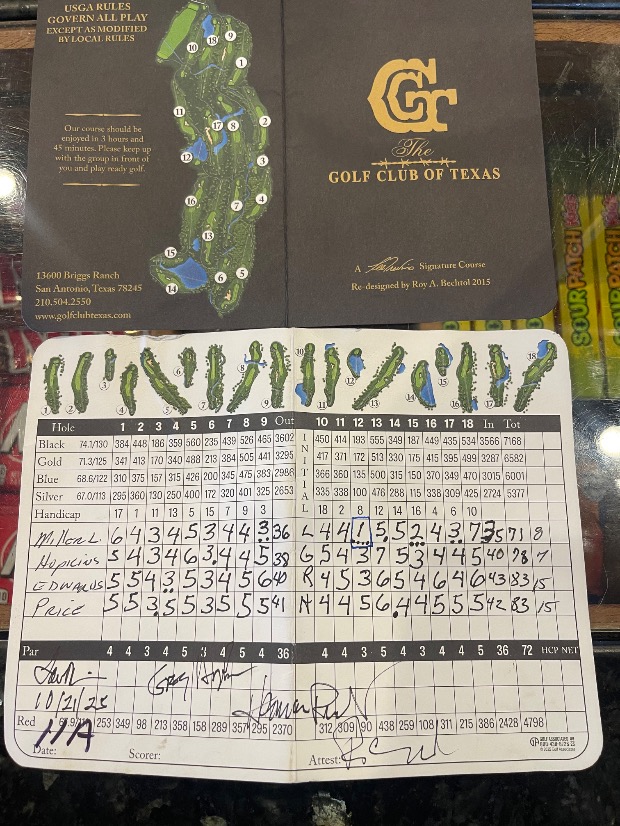 USGA RULES
GOVERN ALL PLAY
EXCEPT AS MODIFIED
BY LOCAL RULES
Our course should be
enjoyed in 3 hours and
45 minutes. Please keep
up with the group in front of
you and play ready golf.
13600 Briggs Ranch
San Antonio, Texas 78245
210.504.2550
www.golfclubtexas.com
10 18 9 1 11 17 8 2 12 3 16 7 4 13 15 6 5 14
GT
The
GOLF CLUB OF TEXAS
A Signature Course
Re-designed by Roy A. Bechtol 2015
SOUR PATCH
SOUR PATCH
1 2 3 4 5 6 7 8 9 10 11 12 13 14 15 16 17 18
Hole 1 2 3 4 5 6 7 8 9 Out INITIAL 10 11 12 13 14 15 16 17 18 In Tot
Black 74.1/130 384 448 186 359 560 235 439 526 465 3602 450 414 193 555 349 187 449 435 534 3566 7168
Gold 71.3/125 341 413 170 340 488 213 384 505 441 3295 417 371 172 513 330 175 415 395 499 3287 6582
Blue 68.6/122 310 375 157 315 426 200 345 475 383 2988 366 360 135 500 315 150 370 349 470 3015 6001
Silver 67.0/113 295 360 130 250 400 172 320 401 325 2653 335 338 100 476 288 115 338 309 425 2724 5377
Handicap 17 1 11 13 5 15 7 9 3 18 2 8 12 14 16 4 6 10
Miller L 6 4 3 4 5 3 4 4 3 36 L 4 4 1 5 5 2 4 3 7 35 71 8
Hopkins 5 4 3 4 6 3 4 4 5 38 G 5 4 3 7 5 3 4 4 5 40 78 7
EDWARDS 5 5 4 3 5 3 4 5 6 40 R 4 5 3 6 5 4 6 4 6 43 83 15
PRICE 5 5 3 5 5 3 5 5 5 41 H 4 4 5 6 4 4 5 5 5 42 83 15
Par 4 4 3 4 5 3 4 5 4 36 4 4 3 5 4 3 4 4 5 36 72 HCP NET
10/21/25
Red 253 349 98 213 358 158 289 357 295 2370 312 309 90 438 259 108 311 215 386 2428 4798
Date: Scorer: Attest: